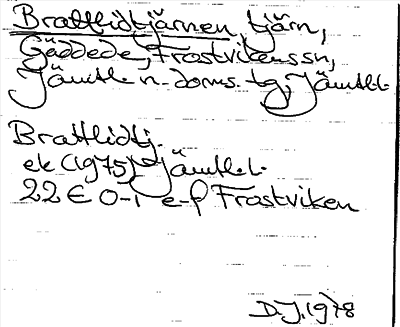 Brattlidtjärnen, tjärn,
Gäddede, Frostvikens sn,
Jämtl. n. doms. tg, Jämtl.l.
Brattlidtj.
ek (1975) Jämtl.l.
22E 0-1 e-f Frostviken
D.J. 1978